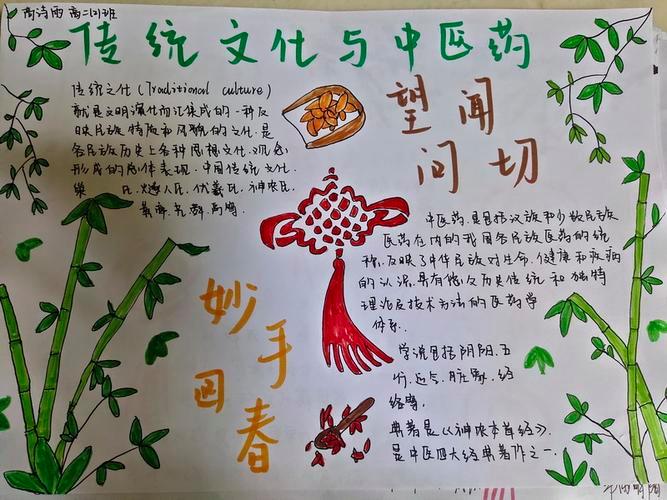 高诗雨 高二(1)班
传统文化与中医药
传统文化(Traditional culture)
就是文明演化而汇集成的一种反
映民族特质和风貌的文化,是
各民族历史上各种思想文化、观念
形成的总体表现,中国传统文化.
巢 氏,燧人氏,伏羲氏,神农氏,
黄帝尧舜禹等
望闻
问切
中医药,是包括汉族和少数民族
医药在内的我国各民族医药的统
称,反映了中华民族对生命、健康和疾病
的认识,具有悠久历史传统和独特
理论及技术方法的医药学
体系.
妙手
回春
学说包括阴阳、五
行、运气、脏象、经
络等,
典著是《神农本草经》.
是中医四大经典著作之一.